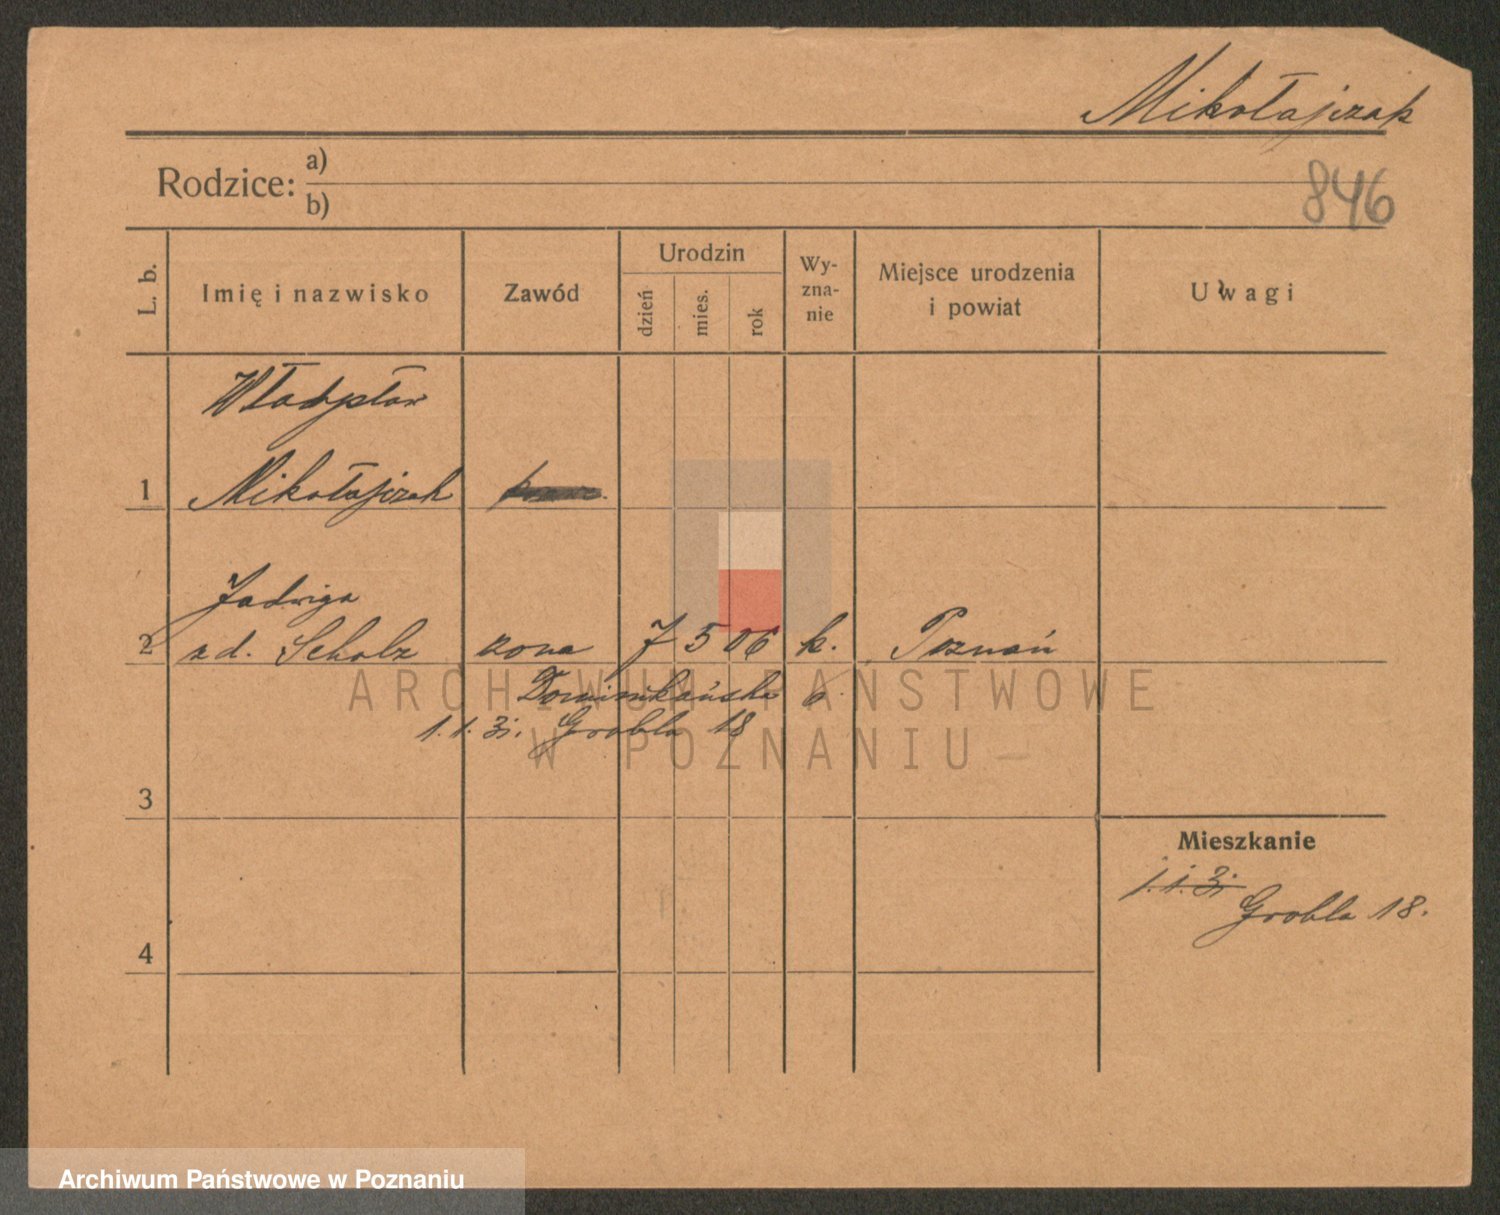 Mikołajczak
Rodzice: a)
b)
846
L. b.
Imię i nazwisko
Zawód
Urodzin
dzień
mies.
rok
Wy-
zna-
nie
Miejsce urodzenia
i powiat
Uwagi
Władysław
1 Mikołajczak
Jadwiga
2 z d. Scholz żona 7 5 06 k. Poznań
Dominikańska 6.
1.1.31. Grobla 18
ARCHIWUM PAŃSTWOWE
W POZNANIU
3
Mieszkanie
1.1.31
Grobla 18.
4
Archiwum Państwowe w Poznaniu